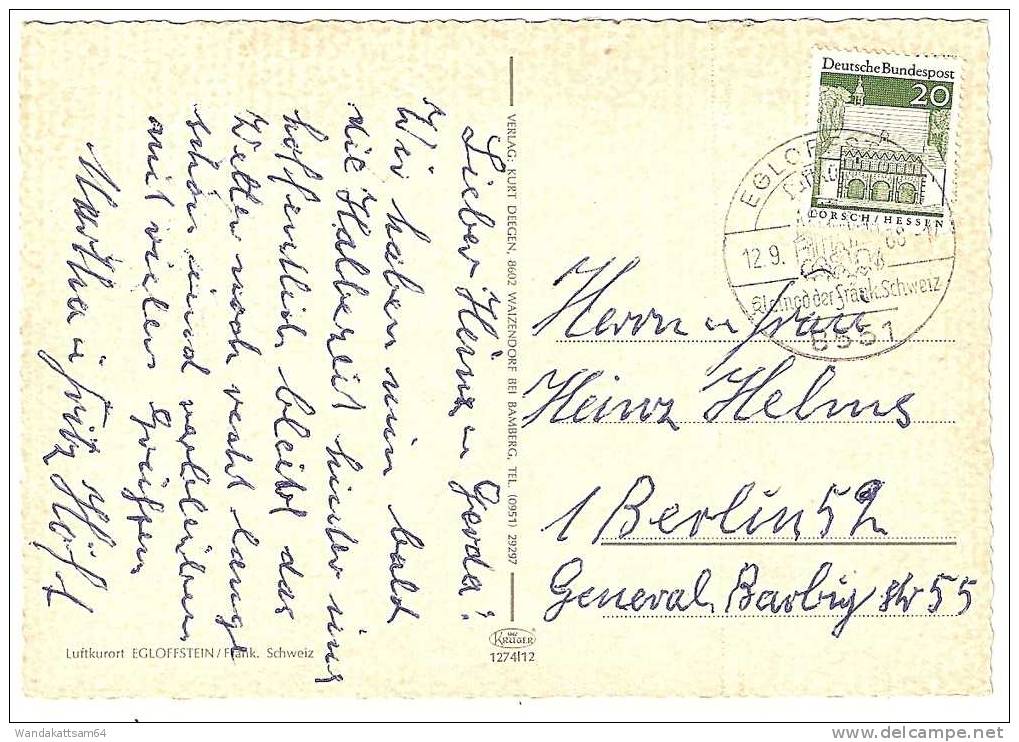 Lieber Heinz u Gerda!
Wir haben nun bald
die Halbzeit hinter uns
hoffentlich bleibt das
Wetter noch recht lange
schön und verbleiben
mit vielen Grüßen
Martha u Fritz
VERLAG: KURT DEEGEN, 8602 WAIZENDORF BEI BAMBERG, TEL. (0951) 29297
Deutsche Bundespost
20
LORSCH/HESSEN
12.9.
Kleinod der Fränk. Schweiz
8551
Herrn u Frau
Heinz Helms
1 Berlin 52
General Barby str 55
Luftkurort EGLOFFSTEIN/Fränk. Schweiz
KRÜGER
1274/12
Wandakattsam64
delcampe.net